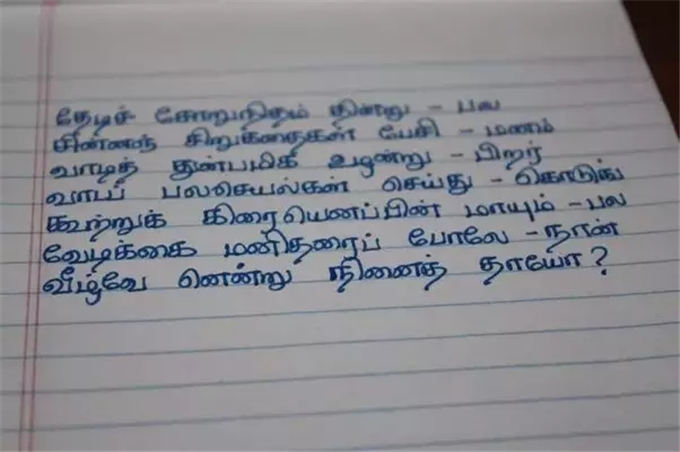 தேடிச் சோறுநிதம் தின்று - பல
சின்னஞ் சிறுகதைகள் பேசி - மனம்
வாடித் துன்பமிக உழன்று - பிறர்
வாடப் பலசெயல்கள் செய்து - கொடுங்
கூற்றுக் கிரையெனப்பின் மாயும் - பல
வேடிக்கை மனிதரைப் போலே - நான்
வீழ்வே னென்று நினைத் தாயோ?